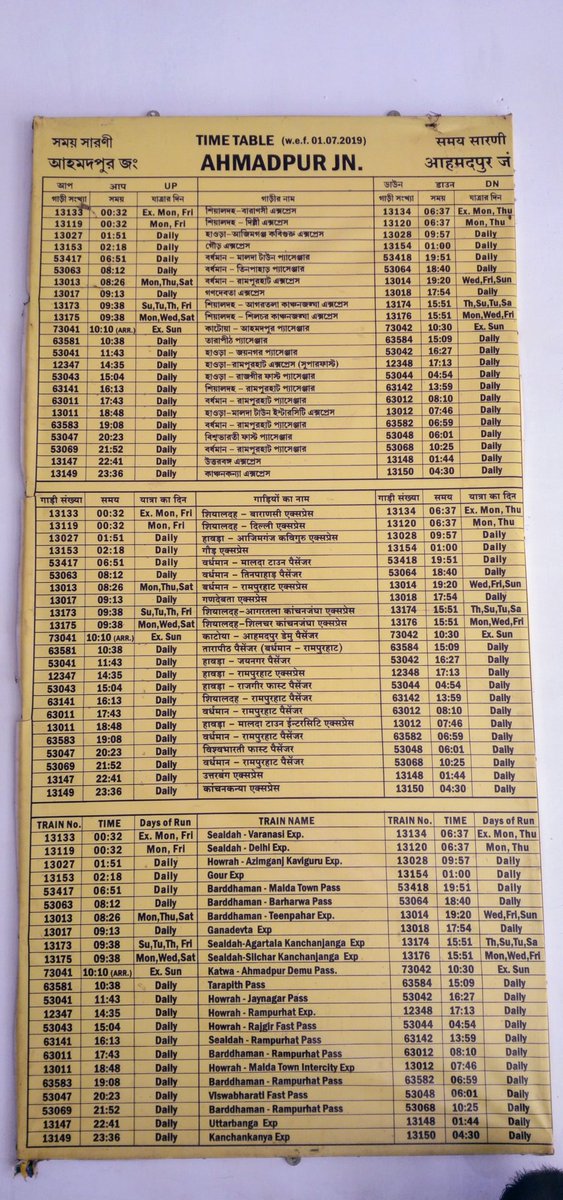 সময় সারণী TIME TABLE (w.e.f. 01.07.2019) समय सारणी
আহমদপুর জং AHMADPUR JN. आहमदपुर जं
আপ आप UP ডাউন डाउन DN
গাড়ী সংখ্যা সময় যাত্রার দিন গাড়ীর নাম গাড়ী সংখ্যা সময় যাত্রার দিন
13133 00:32 Ex. Mon, Fri শিয়ালদহ-বারাণসী এক্সপ্রেস 13134 06:37 Ex. Mon,Thu
13119 00:32 Mon, Fri শিয়ালদহ - দিল্লী এক্সপ্রেস 13120 06:37 Mon, Thu
13027 01:51 Daily হাওড়া-আজিমগঞ্জ কবিগুরু এক্সপ্রেস 13028 09:57 Daily
13153 02:18 Daily গৌড় এক্সপ্রেস 13154 01:00 Daily
53417 06:51 Daily বর্ধমান - মালদা টাউন প্যাসেঞ্জার 53418 19:51 Daily
53063 08:12 Daily বর্ধমান - তিনপাহাড় প্যাসেঞ্জার 53064 18:40 Daily
13013 08:26 Mon,Thu,Sat বর্ধমান - রামপুরহাট এক্সপ্রেস 13014 19:20 Wed,Fri,Sun
13017 09:13 Daily গণদেবতা এক্সপ্রেস 13018 17:54 Daily
13173 09:38 Su,Tu,Th, Fri শিয়ালদহ - আগরতলা কাঞ্চনজঙ্ঘা এক্সপ্রেস 13174 15:51 Th,Su,Tu,Sa
13175 09:38 Mon,Wed,Sat শিয়ালদহ - শিলচর কাঞ্চনজঙ্ঘা এক্সপ্রেস 13176 15:51 Mon,Wed,Fri
73041 10:10 (ARR.) Ex. Sun কাটোয়া - আহমদপুর প্যাসেঞ্জার 73042 10:30 Ex. Sun
63581 10:38 Daily তারাপীঠ প্যাসেঞ্জার 63584 15:09 Daily
53041 11:43 Daily হাওড়া - জয়নগর প্যাসেঞ্জার 53042 16:27 Daily
12347 14:35 Daily হাওড়া-রামপুরহাট এক্সপ্রেস (সুপারফাস্ট) 12348 17:13 Daily
53043 15:04 Daily হাওড়া - রাজগীর ফাস্ট প্যাসেঞ্জার 53044 04:54 Daily
63141 16:13 Daily শিয়ালদহ - রামপুরহাট প্যাসেঞ্জার 63142 13:59 Daily
63011 17:43 Daily বর্ধমান - রামপুরহাট প্যাসেঞ্জার 63012 08:10 Daily
13011 18:48 Daily হাওড়া-মালদা টাউন ইন্টারসিটি এক্সপ্রেস 13012 07:46 Daily
63583 19:08 Daily বর্ধমান - রামপুরহাট প্যাসেঞ্জার 63582 06:59 Daily
53047 20:23 Daily বিশ্বভারতী ফাস্ট প্যাসেঞ্জার 53048 06:01 Daily
53069 21:52 Daily বর্ধমান - রামপুরহাট প্যাসেঞ্জার 53068 10:25 Daily
13147 22:41 Daily উত্তরবঙ্গ এক্সপ্রেস 13148 01:44 Daily
13149 23:36 Daily কাঞ্চনকন্যা এক্সপ্রেস 13150 04:30 Daily
गाड़ी संख्या समय यात्रा का दिन गाड़ियों का नाम गाड़ी संख्या समय यात्रा का दिन
13133 00:32 Ex. Mon, Fri शियालदह - बाराणसी एक्सप्रेस 13134 06:37 Ex. Mon, Thu
13119 00:32 Mon, Fri शियालदह - दिल्ली एक्सप्रेस 13120 06:37 Mon, Thu
13027 01:51 Daily हावड़ा - आजिमगंज कविगुरु एक्सप्रेस 13028 09:57 Daily
13153 02:18 Daily गौड़ एक्सप्रेस 13154 01:00 Daily
53417 06:51 Daily वर्धमान - मालदा टाउन पैसेंजर 53418 19:51 Daily
53063 08:12 Daily वर्धमान - तिनपाहाड़ पैसेंजर 53064 18:40 Daily
13013 08:26 Mon,Thu,Sat बर्धमान - रामपुरहाट एक्सप्रेस 13014 19:20 Wed,Fri,Sun
13017 09:13 Daily गणदेबता एक्सप्रेस 13018 17:54 Daily
13173 09:38 Su,Tu,Th, Fri शियालदह-आगरतला कांचनजंघा एक्सप्रेस 13174 15:51 Th,Su,Tu,Sa
13175 09:38 Mon,Wed,Sat शियालदह-शिलचर कांचनजंघा एक्सप्रेस 13176 15:51 Mon,Wed,Fri
73041 10:10 (ARR.) Ex. Sun काटोया - आहमदपुर डेमु पैसेंजर 73042 10:30 Ex. Sun
63581 10:38 Daily तारापीठ पैसेंजर (बर्धमान - रामपुरहाट) 63584 15:09 Daily
53041 11:43 Daily हावड़ा - जयनगर पैसेंजर 53042 16:27 Daily
12347 14:35 Daily हावड़ा - रामपुरहाट एक्सप्रेस 12348 17:13 Daily
53043 15:04 Daily हावड़ा - राजगीर फास्ट पैसेंजर 53044 04:54 Daily
63141 16:13 Daily शियालदह - रामपुरहाट पैसेंजर 63142 13:59 Daily
63011 17:43 Daily वर्धमान - रामपुरहाट पैसेंजर 63012 08:10 Daily
13011 18:48 Daily हावड़ा - मालदा टाउन ईन्टरसिटि एक्सप्रेस 13012 07:46 Daily
63583 19:08 Daily वर्धमान - रामपुरहाट पैसेंजर 63582 06:59 Daily
53047 20:23 Daily विश्वभारती फास्ट पैसेंजर 53048 06:01 Daily
53069 21:52 Daily वर्धमान - रामपुरहाट पैसेंजर 53068 10:25 Daily
13147 22:41 Daily उत्तरबंग एक्सप्रेस 13148 01:44 Daily
13149 23:36 Daily कांचनकन्या एक्सप्रेस 13150 04:30 Daily
TRAIN No. TIME Days of Run TRAIN NAME TRAIN No. TIME Days of Run
13133 00:32 Ex. Mon, Fri Sealdah - Varanasi Exp. 13134 06:37 Ex. Mon, Thu
13119 00:32 Mon, Fri Sealdah - Delhi Exp. 13120 06:37 Mon, Thu
13027 01:51 Daily Howrah - Azimganj Kaviguru Exp. 13028 09:57 Daily
13153 02:18 Daily Gour Exp 13154 01:00 Daily
53417 06:51 Daily Barddhaman - Malda Town Pass 53418 19:51 Daily
53063 08:12 Daily Barddhaman - Barharwa Pass 53064 18:40 Daily
13013 08:26 Mon,Thu,Sat Barddhaman - Teenpahar Exp. 13014 19:20 Wed,Fri,Sun
13017 09:13 Daily Ganadevta Exp 13018 17:54 Daily
13173 09:38 Su,Tu,Th, Fri Sealdah-Agartala Kanchanjanga Exp 13174 15:51 Th,Su,Tu,Sa
13175 09:38 Mon,Wed,Sat Sealdah-Silchar Kanchanjanga Exp 13176 15:51 Mon,Wed,Fri
73041 10:10 (ARR.) Ex. Sun Katwa - Ahmadpur Demu Pass. 73042 10:30 Ex. Sun
63581 10:38 Daily Tarapith Pass 63584 15:09 Daily
53041 11:43 Daily Howrah - Jaynagar Pass 53042 16:27 Daily
12347 14:35 Daily Howrah - Rampurhat Exp. 12348 17:13 Daily
53043 15:04 Daily Howrah - Rajgir Fast Pass 53044 04:54 Daily
63141 16:13 Daily Sealdah - Rampurhat Pass 63142 13:59 Daily
63011 17:43 Daily Barddhaman - Rampurhat Pass 63012 08:10 Daily
13011 18:48 Daily Howrah - Malda Town Intercity Exp 13012 07:46 Daily
63583 19:08 Daily Barddhaman - Rampurhat Pass 63582 06:59 Daily
53047 20:23 Daily Viswabharati Fast Pass 53048 06:01 Daily
53069 21:52 Daily Barddhaman - Rampurhat Pass 53068 10:25 Daily
13147 22:41 Daily Uttarbanga Exp 13148 01:44 Daily
13149 23:36 Daily Kanchankanya Exp 13150 04:30 Daily